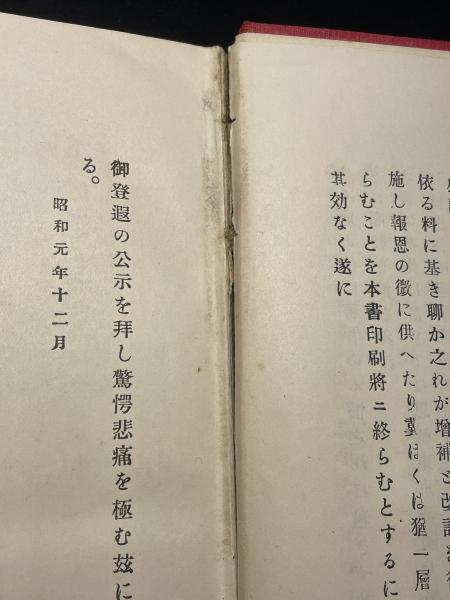 依る料に基き聊か之れが增補と改訂を
施し報恩の微に供へたり冀はくは猶一層
らむことを本書印刷將ニ終らむとするに
其効なく遂に
御登遐の公示を拜し驚愕悲痛を極む玆に
る。
昭和元年十二月